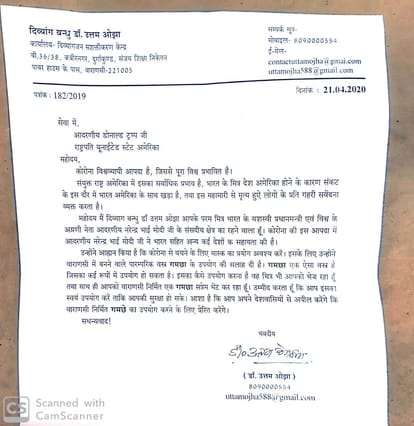 दिव्यांग बन्धु डॉ. उत्तम ओझा
कार्यालय- दिव्यांगजन सशक्तीकरण केन्द्र
बी.36/38, कबीरनगर, दुर्गाकुण्ड, संजय शिक्षा निकेतन
पावर हाउस के पास, वाराणसी-221005
सम्पर्क सूत्र-
मोबाइल- 8090000554
ई-मेल-
contactuttamojha@gmail.com
uttamojha588@gmail.com
पत्रांक: 182/2019
दिनांक : 21.04.2020
सेवा में,
आदरणीय डोनाल्ड ट्रम्प जी
राष्ट्रपति यूनाईटेड स्टेट अमेरिका
महोदय,
कोरोना विश्वव्यापी आपदा है, जिससे पूरा विश्व प्रभावित है।
संयुक्त राष्ट्र अमेरिका में इसका सर्वाधिक प्रभाव है, भारत के मित्र देश अमेरिका होने के कारण संकट
के इस दौर में भारत अमेरिका के साथ खड़ा है, तथा इस महामारी से मृत्यु हुऐ लोगों के प्रति गहरी सवेंदना
व्यक्त करता है।
महोदय में दिव्यांग बन्धु डॉ उत्तम ओझा आपके परम मित्र भारत के यशस्वी प्रधानमन्त्री एवं विश्व के
अग्रणी नेता आदरणीय नरेन्द्र भाई मोदी जी के संसदीय क्षेत्र का रहने वाला हूँ। कोरोना की इस आपदा में
आदरणीय नरेन्द्र भाई मोदी जी ने भारत सहित अन्य कई देशों क सहायता की है।
उन्होंने आह्वान किया है कि कोरोना से बचने के लिए मास्क का प्रयोग अवश्य करें। इसके लिए उन्होंने
वाराणसी में बनने वाले पारम्परिक वस्त्र गमछा के उपयोग की सलाह दी है। गमछा एक ऐसा वस्त्र है
जिसका कई रूपों में उपयोग हो सकता है। इसका कैसे उपयोग करना है वह चित्र भी आपको भेज रहा हूँ
तथा साथ ही आपको वाराणसी निर्मित एक गमछा सप्रेम भेंट कर रहा हूँ। उम्मीद करता हूँ कि आप इसका
स्वयं उपयोग करें ताकि आपकी सुरक्षा हो सके। आशा है कि आप अपने देशवासियों से अपील करेंगे कि
वाराणसी निर्मित गमछे का उपयोग करने के लिए प्रेरित करेंगे।
सधन्यवाद!
भवदीय
(डॉ. उत्तम ओझा)
8090000554
uttamojha588@gmail.com
CS
Scanned with
CamScanner